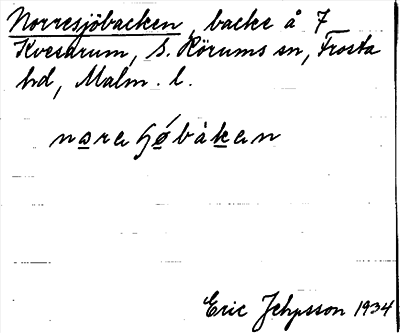 Norresjöbacken, backe å 7
Kvesarum, S. Rörums sn, Frosta
hd, Malm. l.
Eric Jehpsson 1934